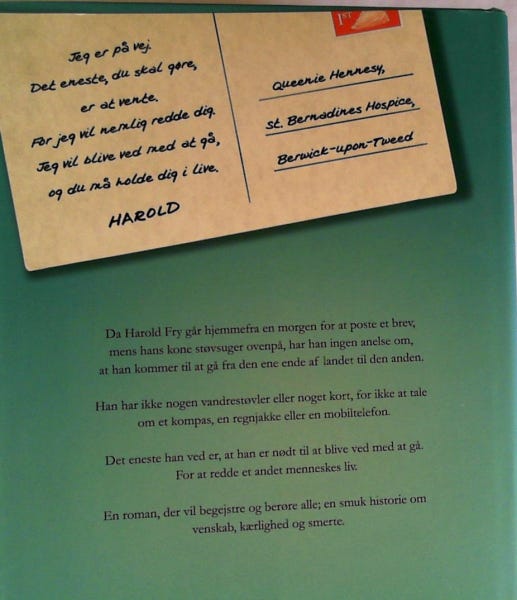 Jeg er på vej.
Det eneste, du skal gøre,
er at vente.
For jeg vil nemlig redde dig.
Jeg vil blive ved med at gå,
og du må holde dig i live.
HAROLD
1ST
Queenie Hennesy,
St. Bernadines Hospice,
Berwick-upon-Tweed
Da Harold Fry går hjemmefra en morgen for at poste et brev,
mens hans kone støvsuger ovenpå, har han ingen anelse om,
at han kommer til at gå fra den ene ende af landet til den anden.
Han har ikke nogen vandrestøvler eller noget kort, for ikke at tale
om et kompas, en regnjakke eller en mobiltelefon.
Det eneste han ved er, at han er nødt til at blive ved med at gå.
For at redde et andet menneskes liv.
En roman, der vil begejstre og berøre alle; en smuk historie om
venskab, kærlighed og smerte.